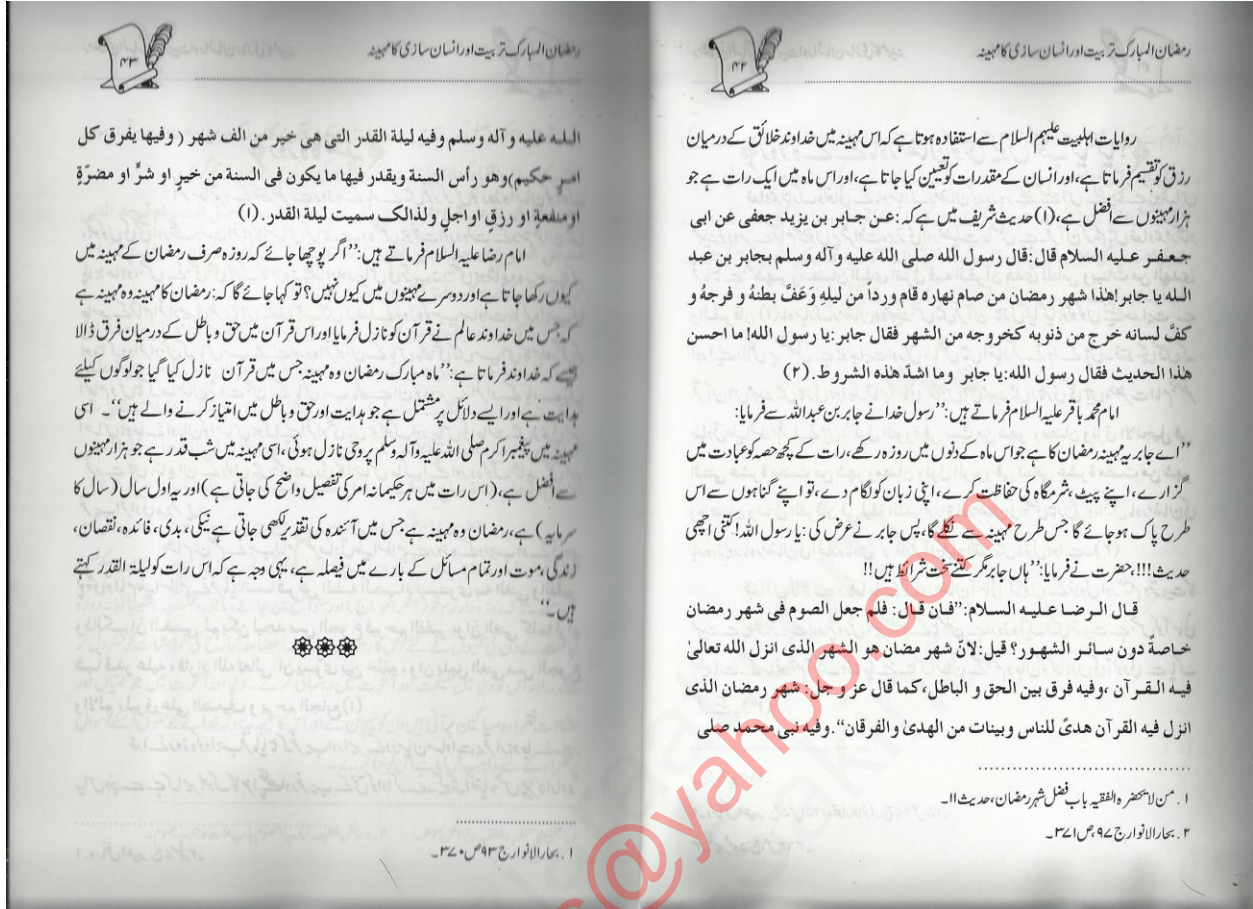 رمضان المبارک تربیت اور انسان سازی کا مہینہ
۴۲
روایات اہلبیت علیہم السلام سے استفادہ ہوتا ہے کہ اس مہینہ میں خداوند خلائق کے درمیان
رزق کو تقسیم فرماتا ہے، اور انسان کے مقدرات کو تعیین کیا جاتا ہے، اور اس ماہ میں ایک رات ہے جو
ہزار مہینوں سے افضل ہے، (۱) حدیث شریف میں ہے کہ: عن جابر بن یزید جعفی عن ابی
جعفر علیه السلام قال: قال رسول الله صلی الله علیه و آله وسلم بجابر بن عبد
الله یا جابر! هذا شهر رمضان من صام نهاره قام ورداً من لیلهِ وَعَفَّ بطنهُ و فرجهُ و
کفَّ لسانه خرج من ذنوبه کخروجه من الشهر فقال جابر: یا رسول الله! ما احسن
هذا الحدیث فقال رسول الله: یا جابر وما اشدّ هذه الشروط. (۲)
امام محمد باقر علیہ السلام فرماتے ہیں: ’’رسول خدا نے جابر بن عبداللہ سے فرمایا:
’’اے جابر یہ مہینہ رمضان کا ہے جو اس ماہ کے دنوں میں روزہ رکھے، رات کے کچھ حصہ کو عبادت میں
گزارے، اپنے پیٹ، شرمگاہ کی حفاظت کرے، اپنی زبان کو لگام دے، تو اپنے گناہوں سے اس
طرح پاک ہو جائے گا جس طرح مہینہ سے نکلے گا، پس جابر نے عرض کی: یا رسول اللہ! کتنی اچھی
حدیث!!!، حضرت نے فرمایا: ’’ہاں جابر مگر کتنے سخت شرائط ہیں!!
قال الرضا علیه السلام: ’’فان قال: فلم جعل الصوم فی شهر رمضان
خاصةً دون سائر الشهور؟ قیل: لانّ شهر مضان هو الشهر الذی انزل الله تعالیٰ
فیه القرآن، وفیه فرق بین الحق و الباطل، کما قال عز و جل: شهر رمضان الذی
انزل فیه القرآن هدیً للناس وبینات من الهدیٰ والفرقان‘‘. وفیه نبی محمد صلی
۱. من لا یحضرہ الفقیہ باب فضل شہر رمضان، حدیث ۱۱۔
۲. بحار الانوار ج ۹۷، ص ۳۷۱۔
رمضان المبارک تربیت اور انسان سازی کا مہینہ
۴۳
الله علیه و آله وسلم وفیه لیلة القدر التی هی خیر من الف شهر (وفیها یفرق کل
امرٍ حکیم) وهو رأس السنة ویقدر فیها ما یکون فی السنة من خیرٍ او شرٍّ او مضرّةٍ
او منفعةٍ او رزقٍ او اجلٍ ولذالک سمیت لیلة القدر. (۱)
امام رضا علیہ السلام فرماتے ہیں: ’’اگر پوچھا جائے کہ روزہ صرف رمضان کے مہینہ میں
کیوں رکھا جاتا ہے اور دوسرے مہینوں میں کیوں نہیں؟ تو کہا جائے گا کہ: رمضان کا مہینہ وہ مہینہ ہے
کہ جس میں خداوند عالم نے قرآن کو نازل فرمایا اور اس قرآن میں حق و باطل کے درمیان فرق ڈالا
جیسے کہ خداوند فرماتا ہے: ’’ماہ مبارک رمضان وہ مہینہ جس میں قرآن نازل کیا گیا جو لوگوں کیلئے
ہدایت ہے اور ایسے دلائل پر مشتمل ہے جو ہدایت اور حق و باطل میں امتیاز کرنے والے ہیں‘‘۔ اسی
مہینہ میں پیغمبر اکرم صلی اللہ علیہ وآلہ وسلم پر وحی نازل ہوئی، اسی مہینہ میں شب قدر ہے جو ہزار مہینوں
سے افضل ہے، (اس رات میں ہر حکیمانہ امر کی تفصیل واضح کی جاتی ہے) اور یہ اول سال (سال کا
سرمایہ) ہے، رمضان وہ مہینہ ہے جس میں آئندہ کی تقدیر لکھی جاتی ہے نیکی، بدی، فائدہ، نقصان،
زندگی، موت اور تمام مسائل کے بارے میں فیصلہ ہے، یہی وجہ ہے کہ اس رات کو لیلۃ القدر کہتے
ہیں۔‘‘
۱. بحار الانوار ج ۹۳ ص ۳۷۰۔
s@yahoo.com